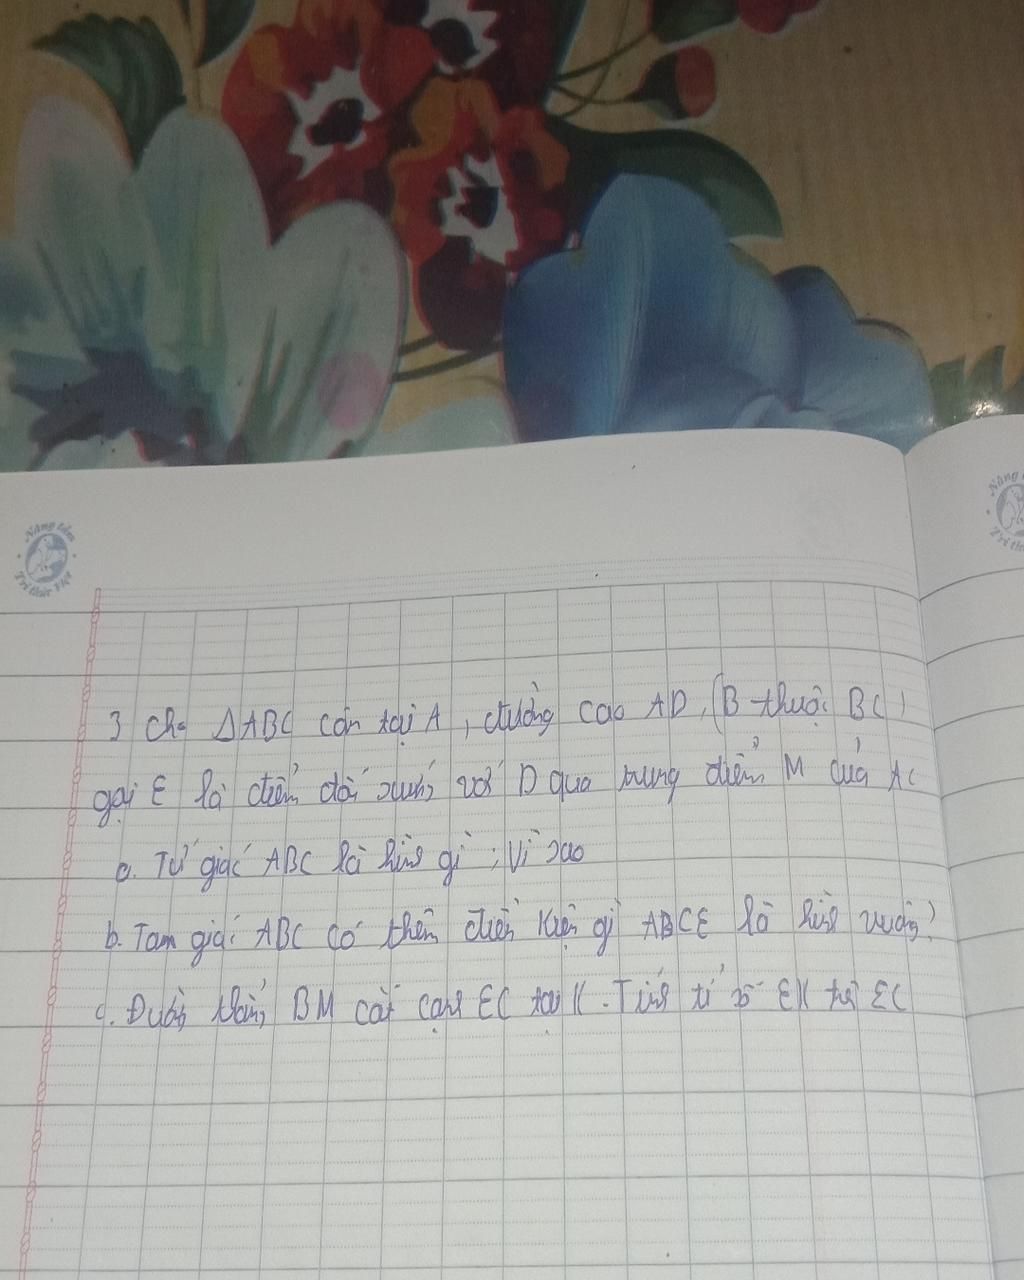 Nâng tầm
Trí thức Việt
Nâng
Tri th
3 Cho ΔABC cân tại A, đường cao AD, (B thuộc BC)
gọi E là điểm đối xứng với D qua trung điểm M của AC
a. Tứ giác ABC là hình gì; Vì sao
b. Tam giác ABC có thêm điều kiện gì ABCE là hình vuông?
c. Đường thẳng BM cắt cạnh EC tại K. Tính tỉ số EK trên EC